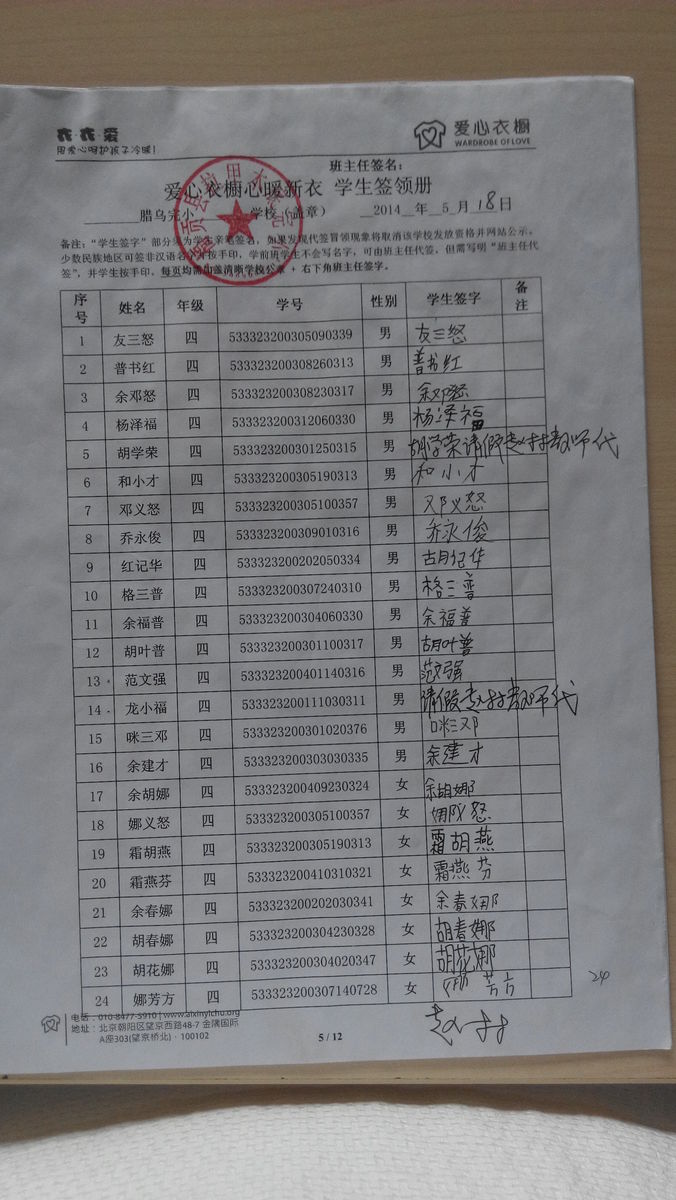 衣·衣·爱
用爱心呵护孩子冷暖!
爱心衣橱
WARDROBE OF LOVE
班主任签名:
爱心衣橱心暖新衣 学生签领册
腊乌完小 学校(盖章) 2014 年 5 月 18 日
备注:“学生签字”部分须为学生亲笔签名,如果发现代签冒领现象将取消该学校发放资格并网站公示。
少数民族地区可签非汉语名字并按手印,学前班学生不会写名字,可由班主任代签,但需写明“班主任代
签”,并学生按手印,每页均需加盖清晰学校公章 + 右下角班主任签字。
序号 姓名 年级 学号 性别 学生签字 备注
1 友三怒 四 533323200305090339 男 友三怒
2 普书红 四 533323200308260313 男 普书红
3 余邓怒 四 533323200308230317 男 余邓怒
4 杨泽福 四 533323200312060330 男 杨泽福
5 胡学荣 四 533323200301250315 男 胡学荣请假赵村教师代
6 和小才 四 533323200305190313 男 和小才
7 邓义怒 四 533323200305100357 男 邓义怒
8 乔永俊 四 533323200309010316 男 乔永俊
9 红记华 四 533323200202050334 男 古月记华
10 格三普 四 533323200307240310 男 格三普
11 余福普 四 533323200304060330 男 余福普
12 胡叶普 四 533323200301100317 男 胡叶普
13 范文强 四 533323200401140316 男 范文强
14 龙小福 四 533323200111030311 男 请假赵村教师代
15 咪三邓 四 533323200301020376 男 咪三邓
16 余建才 四 533323200303030335 男 余建才
17 余胡娜 四 533323200409230324 女 余胡娜
18 娜义怒 四 533323200305100357 女 娜义怒
19 霜胡燕 四 533323200305190313 女 霜胡燕
20 霜燕芬 四 533323200410310321 女 霜燕芬
21 余春娜 四 533323200202030341 女 余春娜
22 胡春娜 四 533323200304230328 女 胡春娜
23 胡花娜 四 533323200304020347 女 胡花娜
24 娜芳方 四 533323200307140728 女 娜芳方
24
电话:010-8477-5910 | www.aixinyichu.org
地址:北京朝阳区望京西路48-7 金隅国际
A座303(望京桥北)·100102
5 / 12